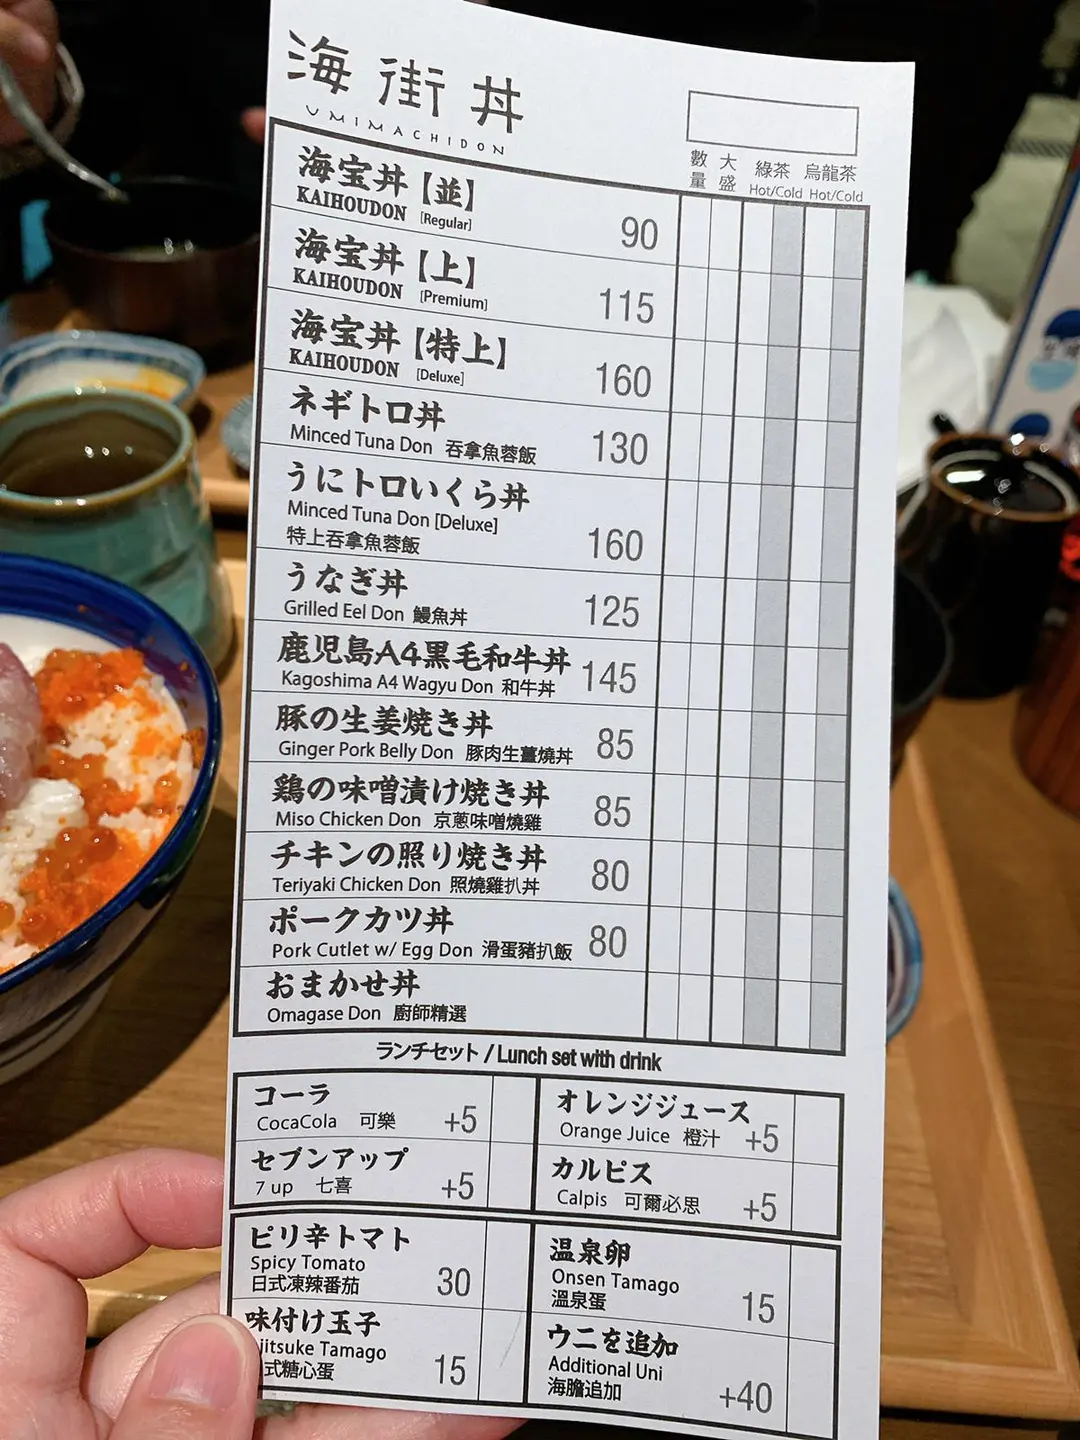 海街丼
UMIMACHIDON
數量 大盛 綠茶 烏龍茶
Hot/Cold Hot/Cold
海宝丼【並】
KAIHOUDON [Regular] 90
海宝丼【上】
KAIHOUDON [Premium] 115
海宝丼【特上】
KAIHOUDON [Deluxe] 160
ネギトロ丼
Minced Tuna Don 吞拿魚蓉飯 130
うにトロいくら丼
Minced Tuna Don [Deluxe]
特上吞拿魚蓉飯 160
うなぎ丼
Grilled Eel Don 鰻魚丼 125
鹿児島A4黒毛和牛丼
Kagoshima A4 Wagyu Don 和牛丼 145
豚の生姜焼き丼
Ginger Pork Belly Don 豚肉生薑燒丼 85
鶏の味噌漬け焼き丼
Miso Chicken Don 京蔥味噌燒雞 85
チキンの照り焼き丼
Teriyaki Chicken Don 照燒雞扒丼 80
ポークカツ丼
Pork Cutlet w/ Egg Don 滑蛋豬扒飯 80
おまかせ丼
Omagase Don 廚師精選
ランチセット / Lunch set with drink
コーラ
CocaCola 可樂 +5
オレンジジュース
Orange Juice 橙汁 +5
セブンアップ
7 up 七喜 +5
カルピス
Calpis 可爾必思 +5
ピリ辛トマト
Spicy Tomato
日式凍辣番茄 30
温泉卵
Onsen Tamago
溫泉蛋 15
味付け玉子
jitsuke Tamago
式糖心蛋 15
ウニを追加
Additional Uni
海膽追加 +40